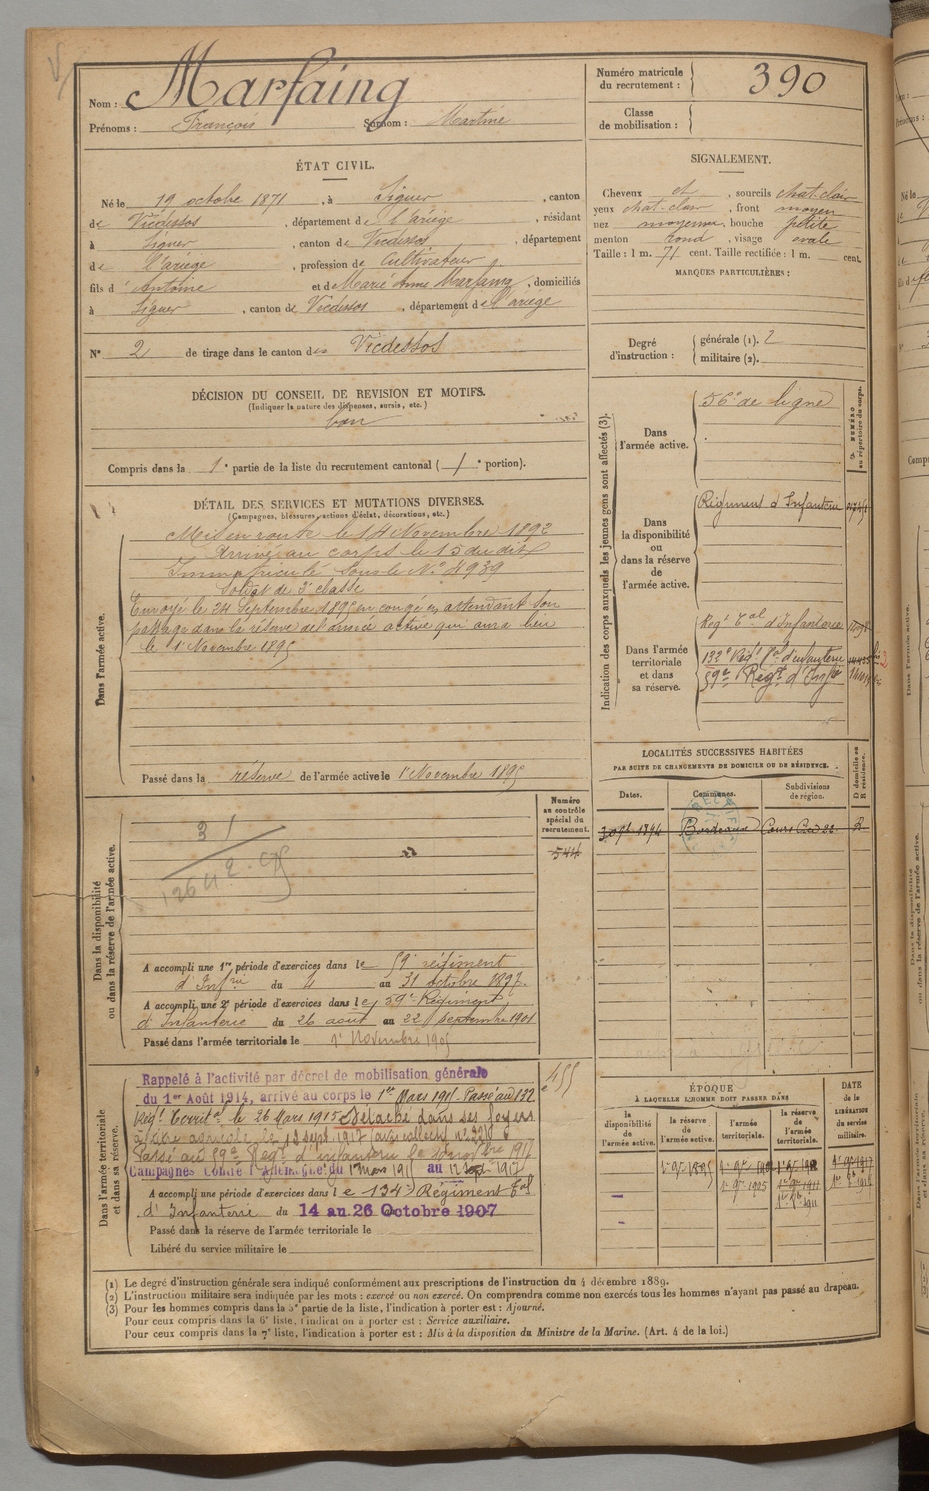 Nom : Marfaing
Prénoms : François Surnom : Martine
Numéro matricule du recrutement : 390
Classe de mobilisation :
ÉTAT CIVIL.
Né le 19 octobre 1871, à Siguer, canton
de Vicdessos, département de l'ariège, résidant
à Siguer, canton de Vicdessos, département
de l'ariège, profession de Cultivateur
fils d'Antoine et de Marie Anne Marfaing, domiciliés
à Siguer, canton de Vicdessos, département de l'ariège
N° 2 de tirage dans le canton de Vicdessos
SIGNALEMENT.
Cheveux et, sourcils chat. clair
yeux chat. clair, front moyen
nez moyenne, bouche petite
menton rond, visage ovale
Taille : 1 m. 71 cent. Taille rectifiée : 1 m. cent.
MARQUES PARTICULIÈRES :
Degré d'instruction : générale (1). 2
militaire (2).
DÉCISION DU CONSEIL DE REVISION ET MOTIFS.
(Indiquer la nature des dispenses, sursis, etc.)
bon
Compris dans la 1e partie de la liste du recrutement cantonal ( 1e portion).
DÉTAIL DES SERVICES ET MUTATIONS DIVERSES.
(Campagnes, blessures, actions d'éclat, décorations, etc.)
Dans l'armée active.
Mis en route le 14 Novembre 1892
Arrivé au corps le 15 du dit
Immatriculé sous le N° 4939
Soldat de 2e classe
Envoyé le 24 Septembre 1895 en congé en attendant son
passage dans la réserve de l'armée active qui aura lieu
le 1er Novembre 1895
Passé dans la réserve de l'armée active le 1er Novembre 1895
Indication des corps auxquels les jeunes gens sont affectés (3).
NUMÉRO au répertoire du corps.
Dans l'armée active.
56e de ligne
Dans la disponibilité ou dans la réserve de l'armée active.
Régiment d'Infanterie
Dans l'armée territoriale et dans sa réserve.
Regt Tal d'Infanterie
132e Régt Tal d'infanterie
59e Regt d'Infie
LOCALITÉS SUCCESSIVES HABITÉES
PAR SUITE DE CHANGEMENTS DE DOMICILE OU DE RÉSIDENCE.
D domicile ou R résidence.
Dates. Communes. Subdivisions de région.
Bordeaux
Dans la disponibilité ou dans la réserve de l'armée active.
Numéro au contrôle spécial du recrutement.
544
31
A accompli une 1re période d'exercices dans le 59e régiment
d'Infrie du 4 au 31 octobre 1897.
A accompli une 2e période d'exercices dans le 59e Régiment
d'Infanterie du 26 août au 22 Septembre 1901
Passé dans l'armée territoriale le 1er Novembre 1905
Dans l'armée territoriale et dans sa réserve.
455
Rappelé à l'activité par décret de mobilisation générale
du 1er Août 1914, arrivé au corps le 1er Mars 1915. Passé au 132
Régt Territal le 26 Mars 1915 Détaché dans ses foyers
12 sept. 1917
Passé au 59e Regt d'infanterie le
Campagnes contre l'Allemagne du 1er Mars 1915 au 12 sept 1917
A accompli une période d'exercices dans le 134e Régiment Tal
d'Infanterie du 14 au 26 Octobre 1907
Passé dans la réserve de l'armée territoriale le
Libéré du service militaire le
ÉPOQUE
À LAQUELLE L'HOMME DOIT PASSER DANS
la disponibilité de l'armée active. la réserve de l'armée active. l'armée territoriale. la réserve de l'armée territoriale.
DATE de la LIBÉRATION du service militaire.
(1) Le degré d'instruction générale sera indiqué conformément aux prescriptions de l'instruction du 4 décembre 1889.
(2) L'instruction militaire sera indiquée par les mots : exercé ou non exercé. On comprendra comme non exercés tous les hommes n'ayant pas passé au drapeau.
(3) Pour les hommes compris dans la 5e partie de la liste, l'indication à porter est : Ajourné.
Pour ceux compris dans la 6e liste, l'indication à porter est : Service auxiliaire.
Pour ceux compris dans la 7e liste, l'indication à porter est : Mis à la disposition du Ministre de la Marine. (Art. 4 de la loi.)